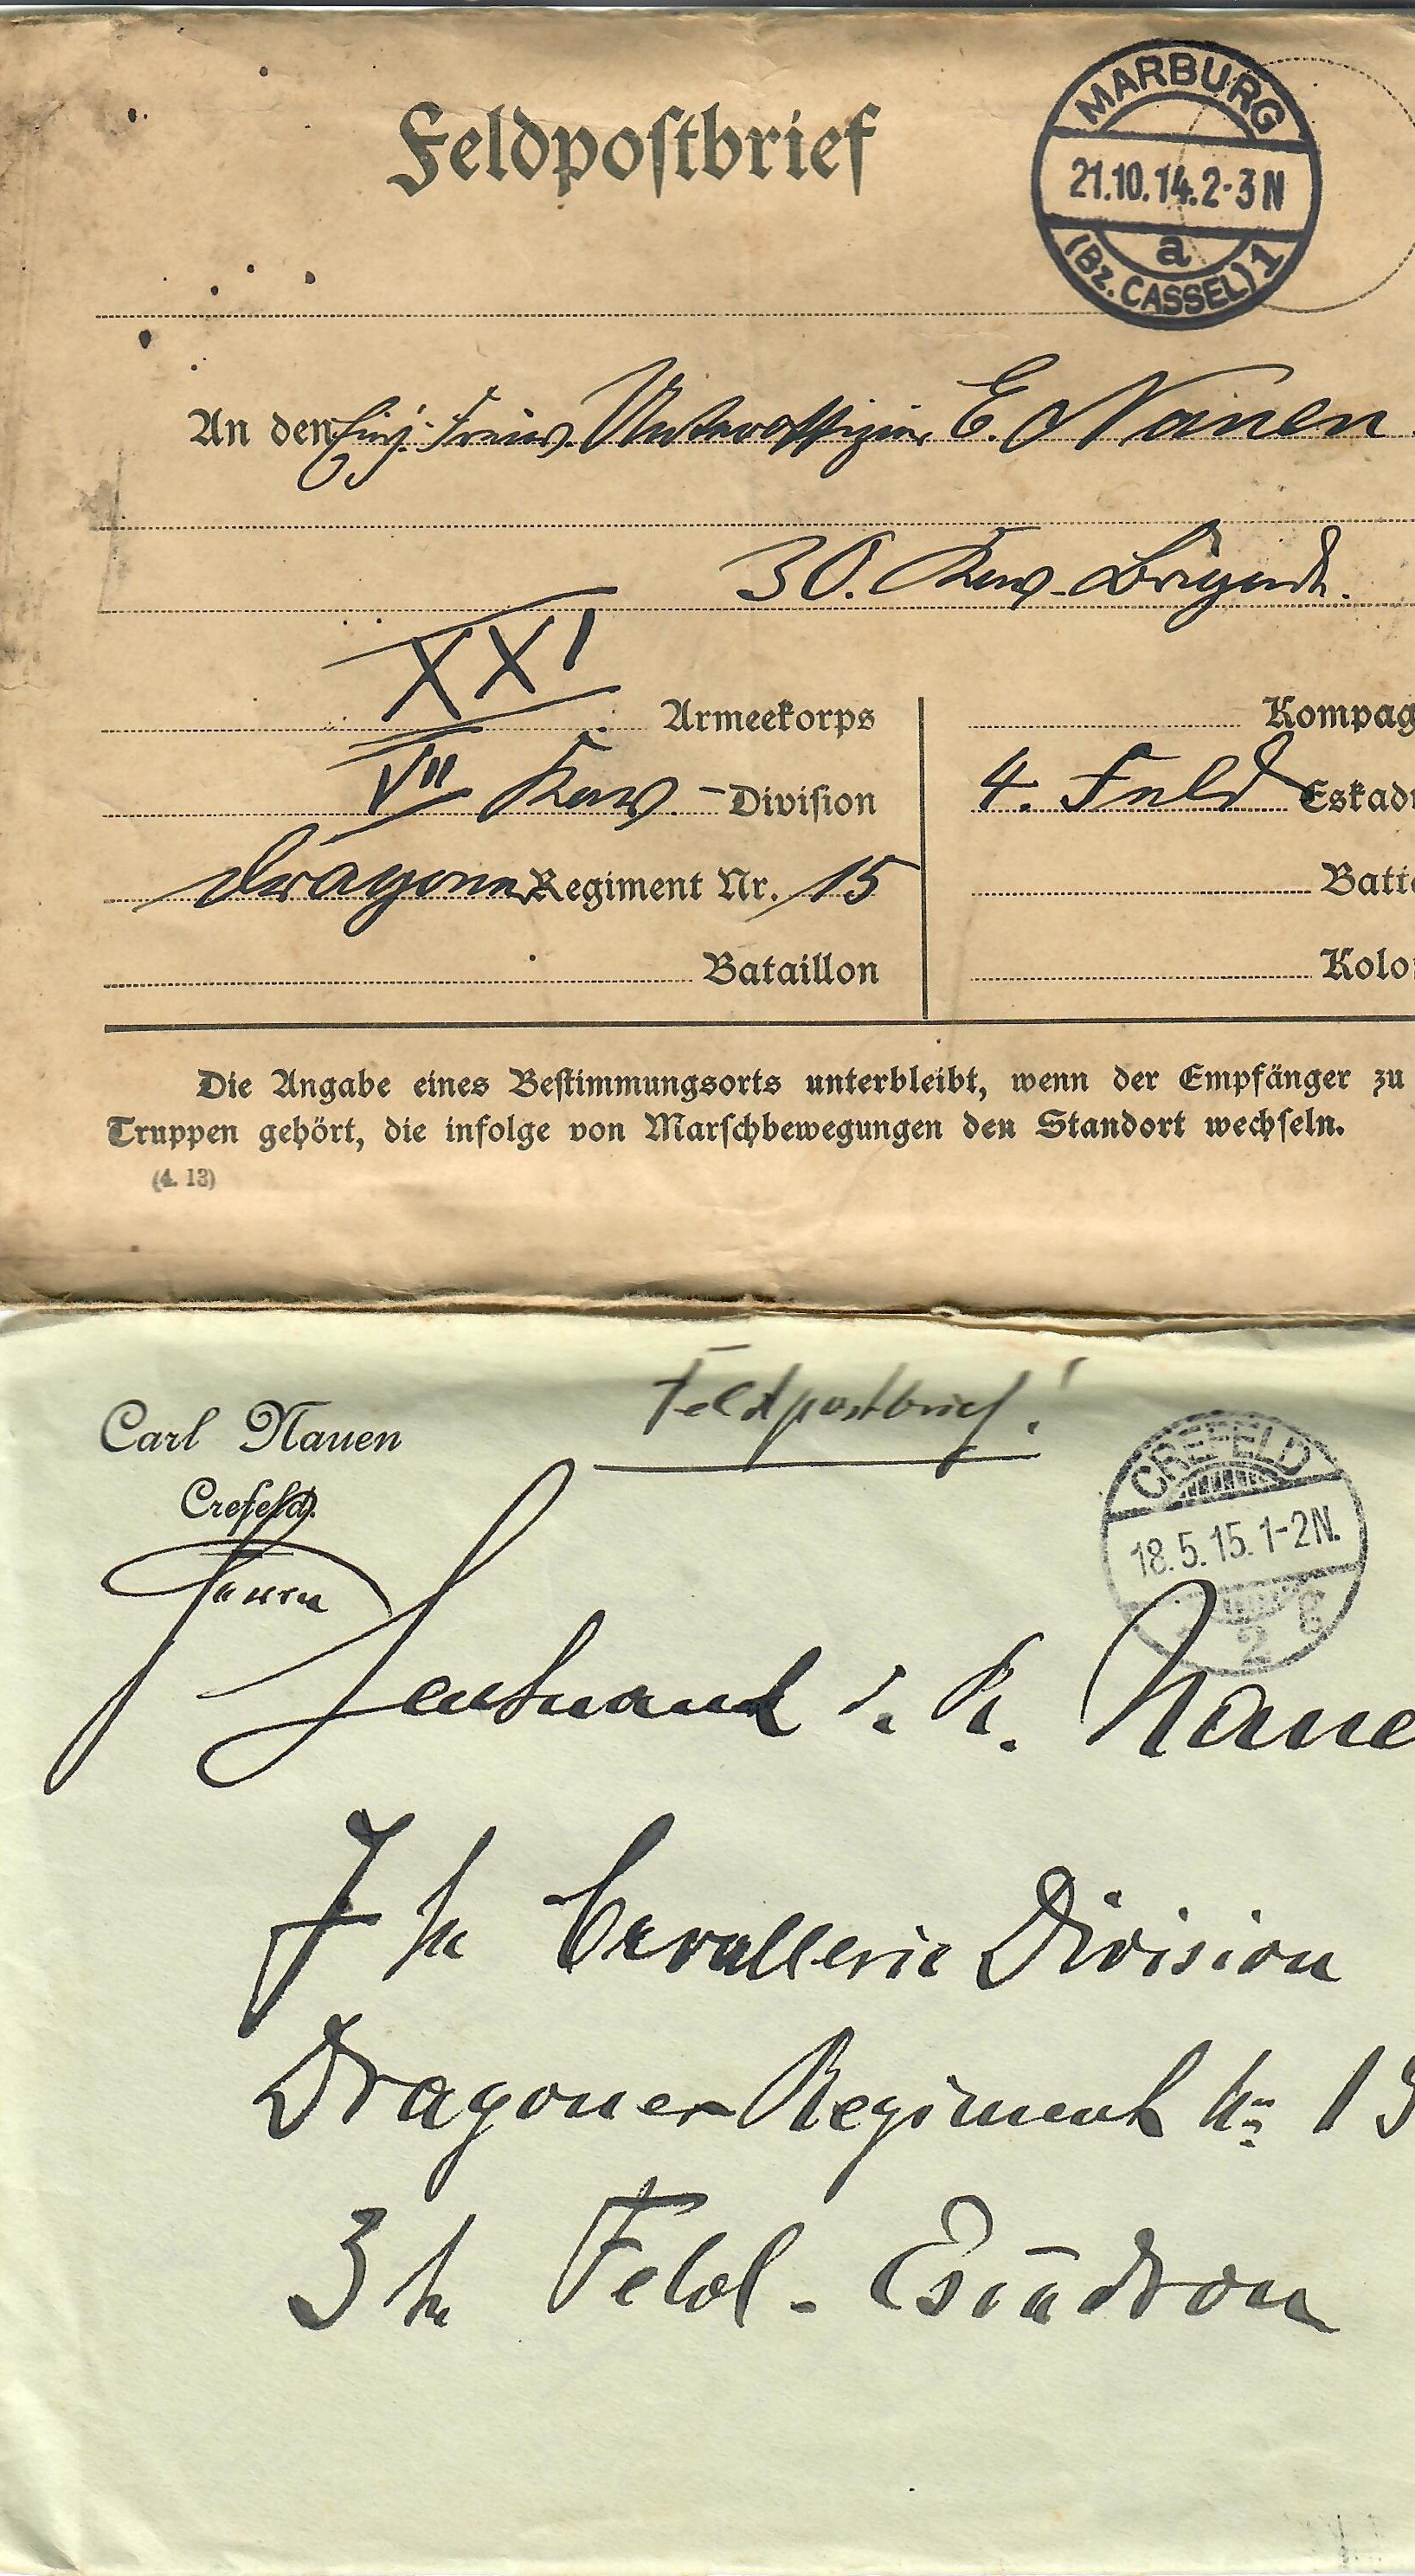 Feldpostbrief
MARBURG
21.10.14.2-3N
a
(Bz. CASSEL) 1
An den Einj. Freiw. Unteroffizier E. Nauen
30. Kav. Brigade.
XXI Armeekorps
Kompag
VII Kav. - Division
4. Feld Eskad
Dragoner Regiment Nr. 15
Batt
Bataillon
Kolo
Die Angabe eines Bestimmungsorts unterbleibt, wenn der Empfänger zu
Truppen gehört, die infolge von Marschbewegungen den Standort wechseln.
(4. 13)
Feldpostbrief!
Carl Nauen
Crefeld.
CREFELD
18.5.15.1-2N.
2
Herrn
Leutnant d. R. Naue
7te Cavallerie Division
Dragoner Regiment No 15
3te Feld-Escadron